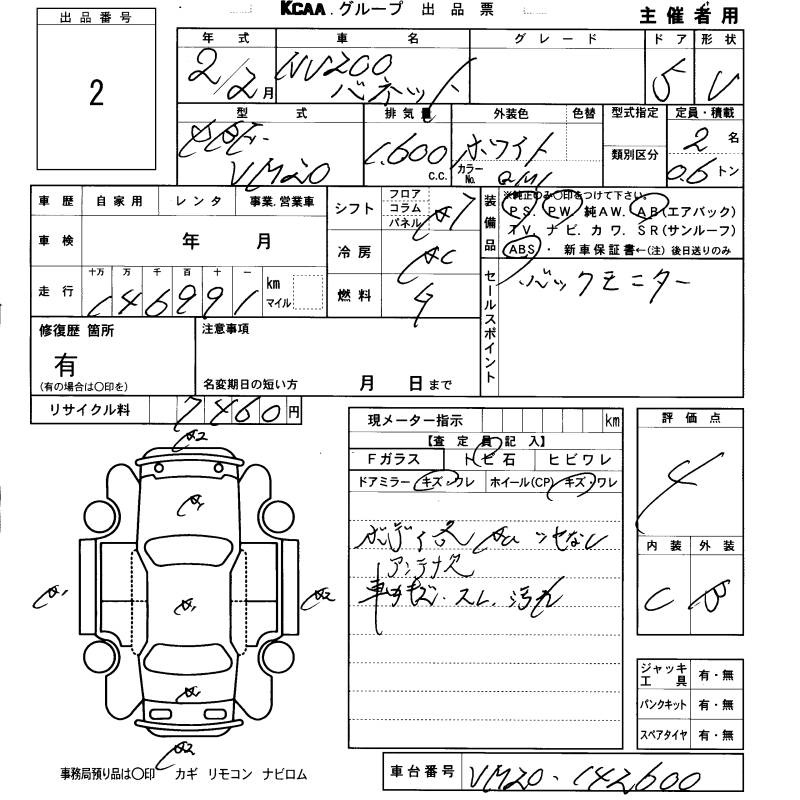 KCAA.グループ 出品票
主催者用
出品番号
2
年式 車名 グレード ドア 形状
2/2月 NV200 バネット 5 V
型式 排気量 外装色 色替 型式指定 定員・積載
VM20 1,600 c.c. ホワイト 類別区分 2名
カラーNo. QM1 0.6トン
車歴 自家用 レンタ 事業.営業車
シフト フロア コラム パネル AT
車検 年 月
冷房 AC
走行 十万 万 千 百 十 一
146991 km マイル
燃料 G
装備品
※純正のみ○印をつけて下さい。
PS. PW. 純AW. AB(エアバック)
TV. ナビ. カワ. SR(サンルーフ)
ABS・ 新車保証書←(注) 後日送りのみ
セールスポイント
バックモニター
修復歴 箇所
有
(有の場合は○印を)
注意事項
名変期日の短い方 月 日まで
リサイクル料 7460円
現メーター指示 km
【査定員記入】
Fガラス トビ石 ヒビワレ
ドアミラー キズ.ワレ ホイール(CP) キズ.ワレ
アンテナ欠
キズ・スレ.汚れ
評価点
4
内装 外装
C B
A2
A1
A1
A1
A2
A1
A2
ジャッキ工具 有・無
パンクキット 有・無
スペアタイヤ 有・無
事務局預り品は○印 カギ リモコン ナビロム
車台番号 VM20-142600